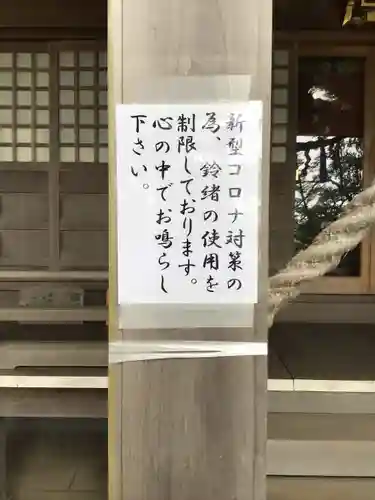 新型コロナ対策の
為、鈴緒の使用を
制限しております。
心の中でお鳴らし
下さい。